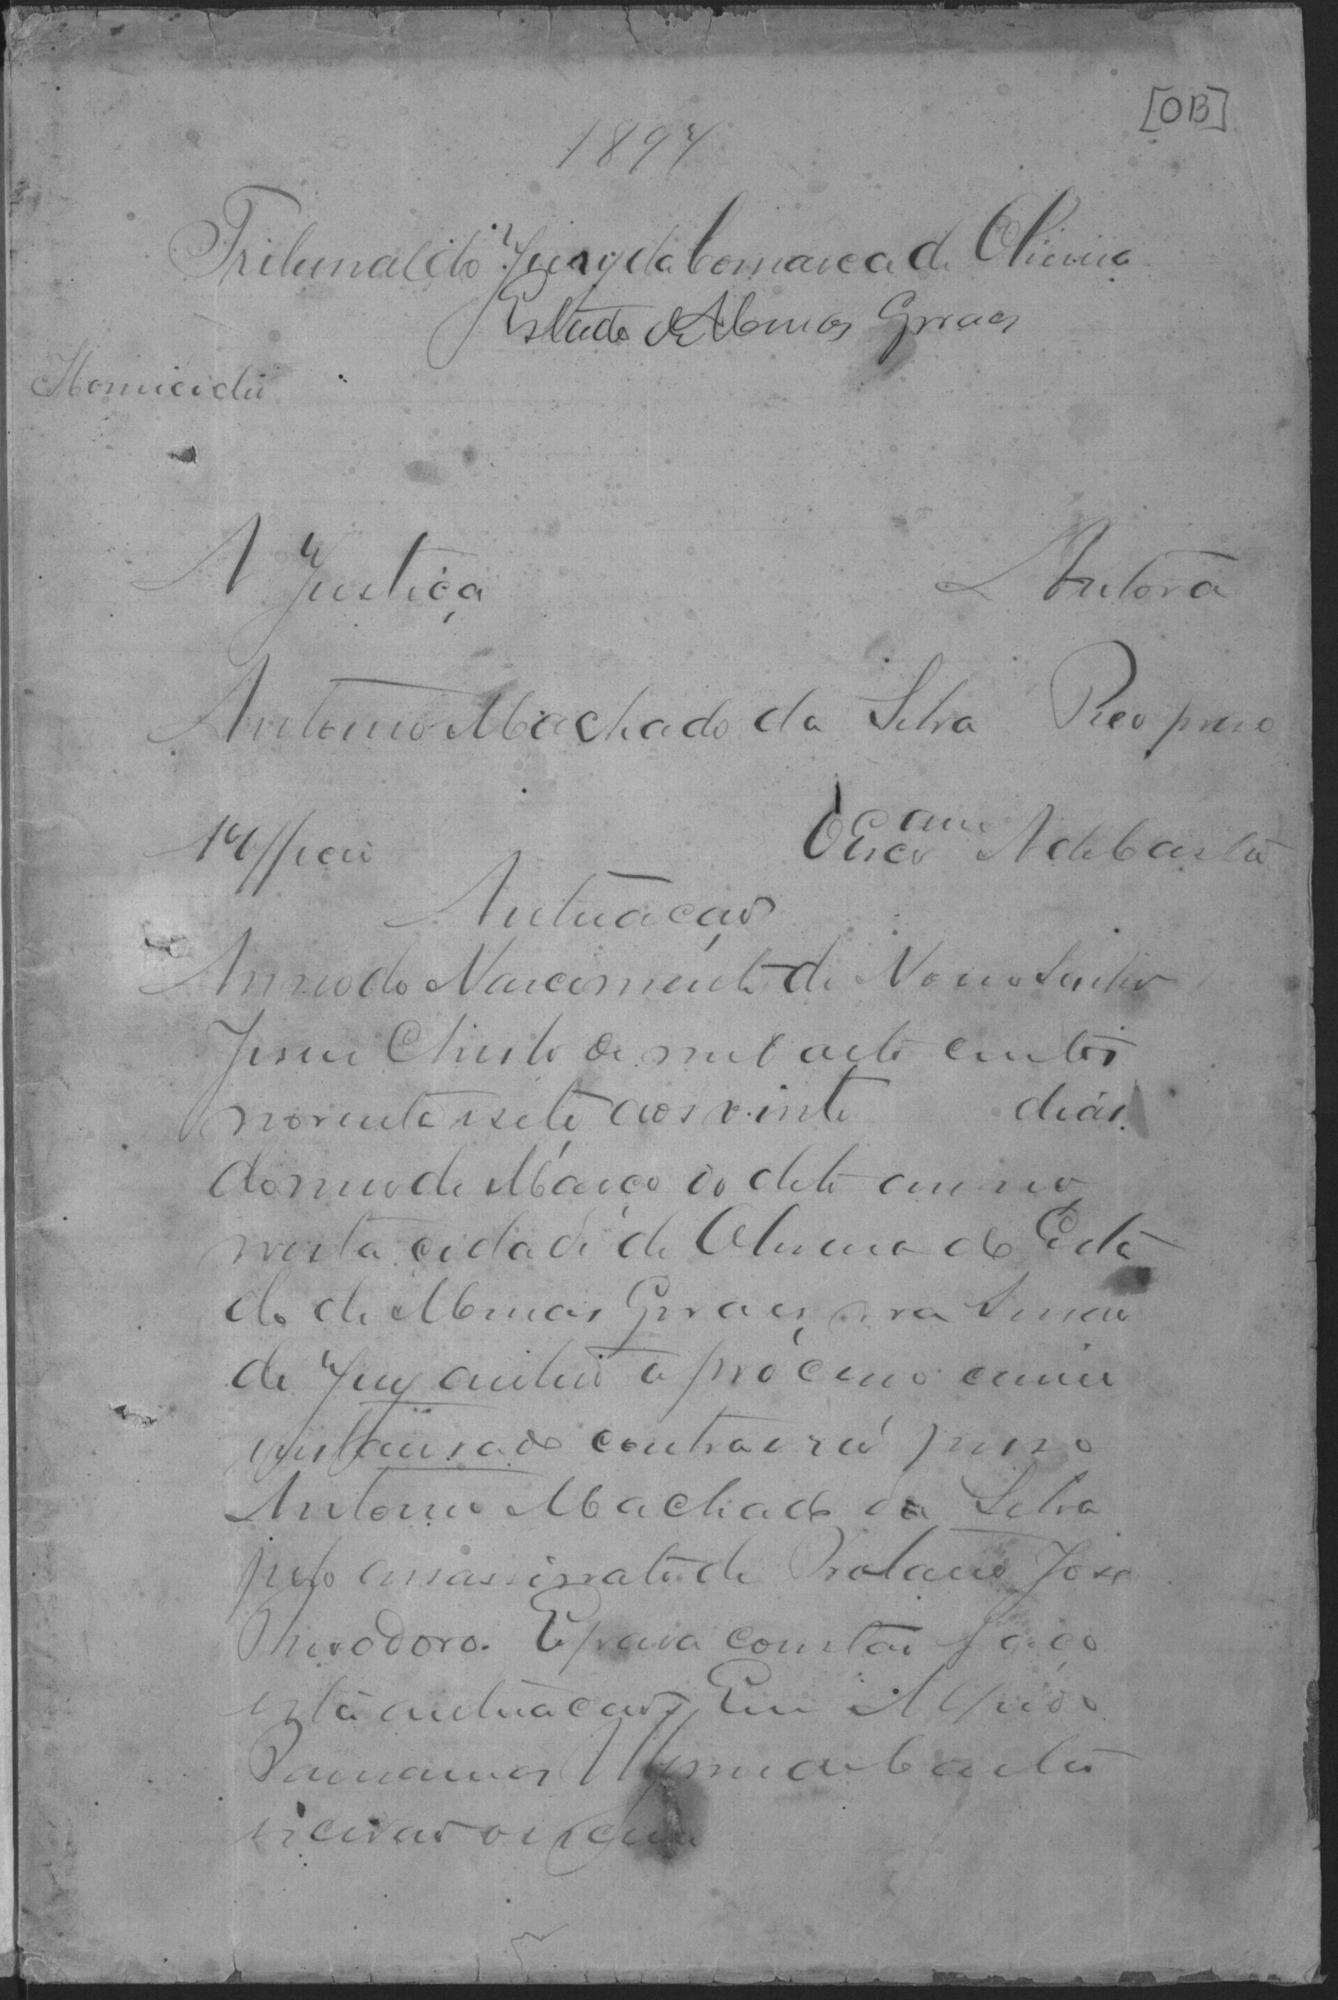 [OB]
1897
Tribunal do Jury da Comarca de Oliveira
Estado de Minas Geraes
Homicidio
A Justiça Autora
Antonio Machado da Silva Reo preso
Escrivão A de Castro
Autuação
Anno do Nascimento de Nosso Senhor
Jesus Christo de mil oito centos
noventa e sete aos vinte dias
do mes de Março do dito anno
nesta cidade de Oliveira do Esta
do de Minas Geraes,
de Juy autuo o processo crime
instaurado contra o reo preso
Antonio Machado da Silva
pelo assassinato de José
Theodoro. E para constar faço
esta autuação. Eu
de Castro
escrivão o escrevi